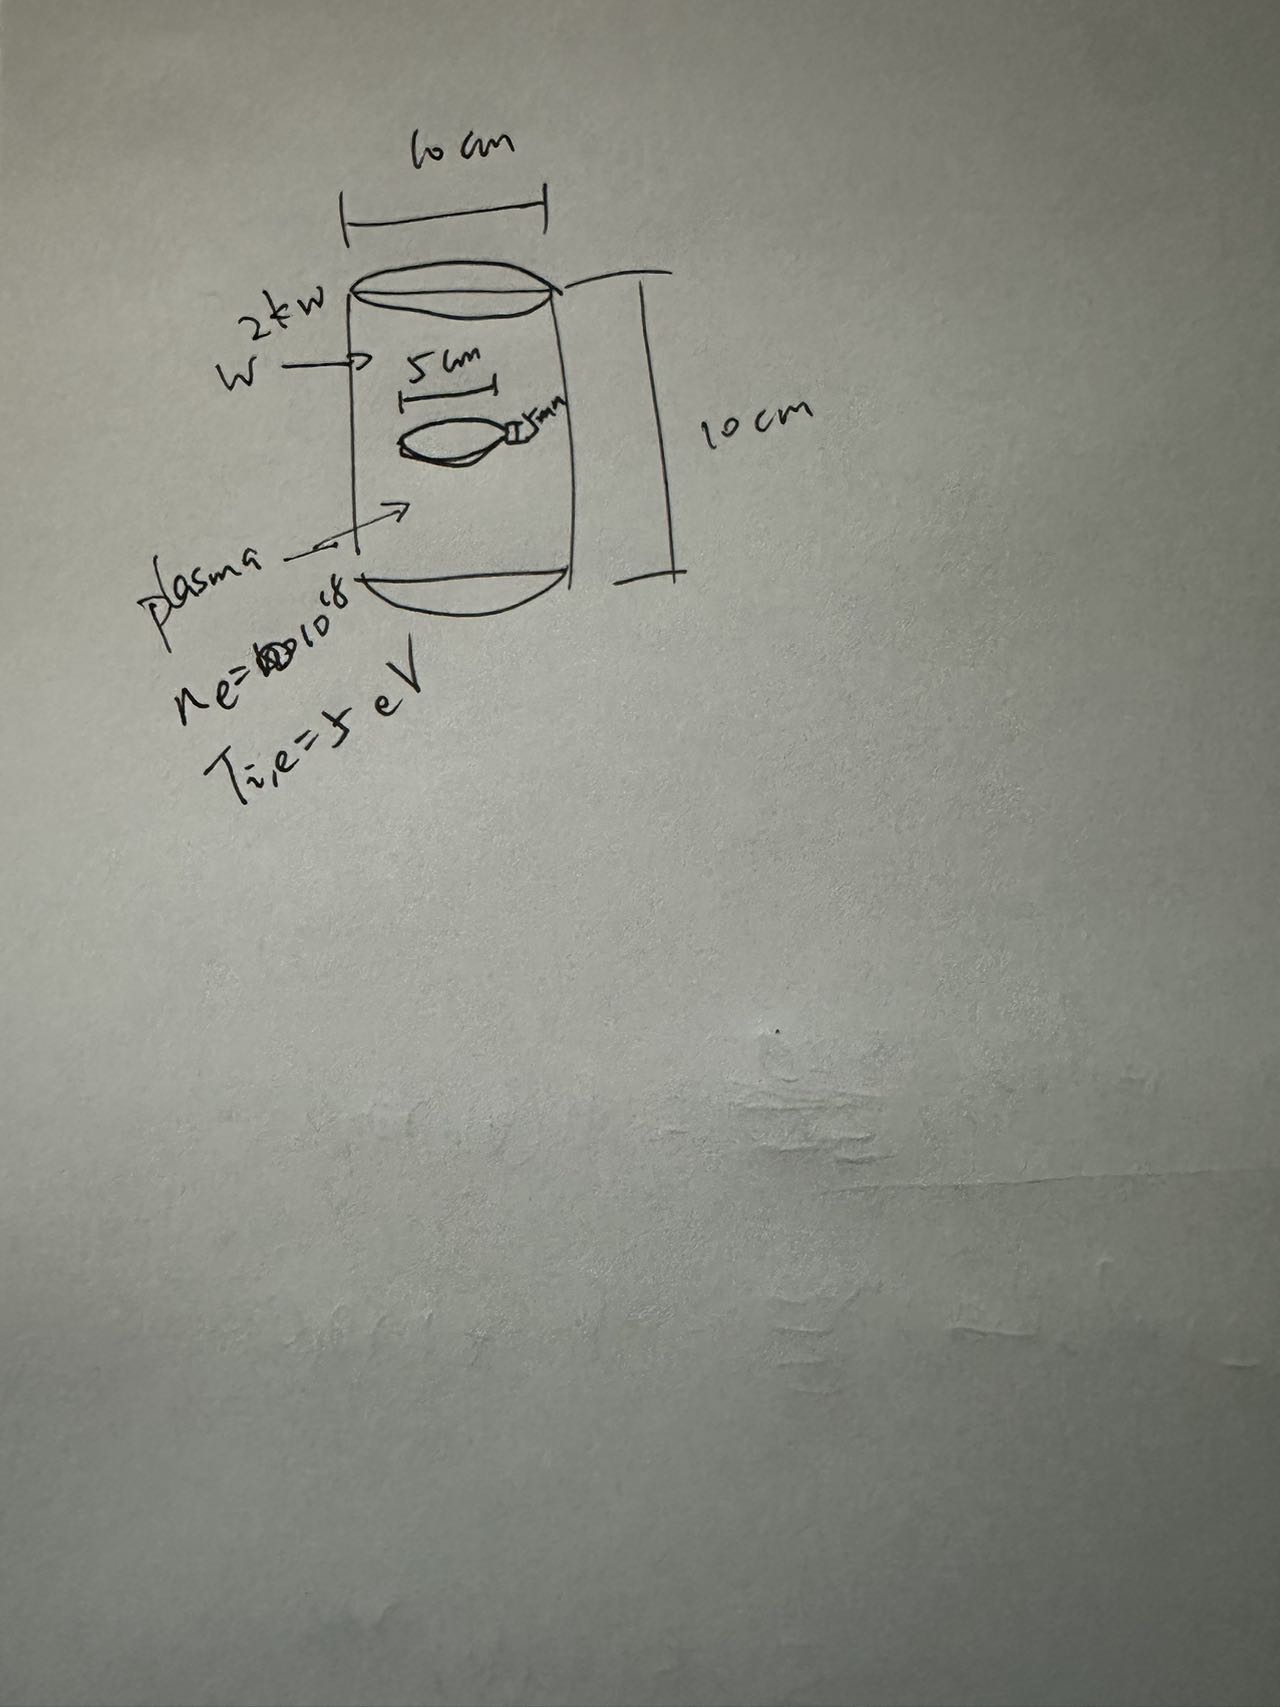 10 cm
2kW
W
5 cm
5mm
10 cm
plasma
ne= 10^18
Ti,e=5 eV